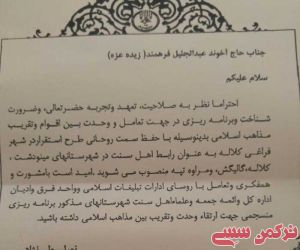 جناب حاج آخوند عبدالجلیل فرهمند( زیده عزه)
سلام علیکم
احتراما نظر به صلاحیت، تعهد وتجربه حضرتعالی، وضرورت
شناخت وبرنامه ریزی در جهت تعامل و وحدت بین اقوام وتقریب
مذاهب اسلامی بدینوسیله با حفظ سمت روحانی طرح استقراردر شهر
فراغی کلاله به عنوان رابط اهل سنت در شهرستانهای مینودشت ،
کلاله،گالیکش، ومراوه تپه منصوب می شوید. امید است بامشورت و
همفکری وتعامل با روسای ادارات تبلیغات اسلامی وواحد فرق وادیان
اداره کل وائمه جمعه وعلماءاهل سنت شهرستانهای مذکور برنامه ریزی
منسجمی جهت ارتقاء وحدت وتقریب بین مذاهب اسلامی داشته باشید.
ترکمن سسی